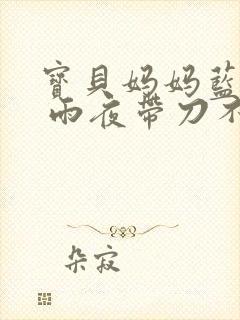 寶貝妈妈藍
雨夜帶刀不
朵寂